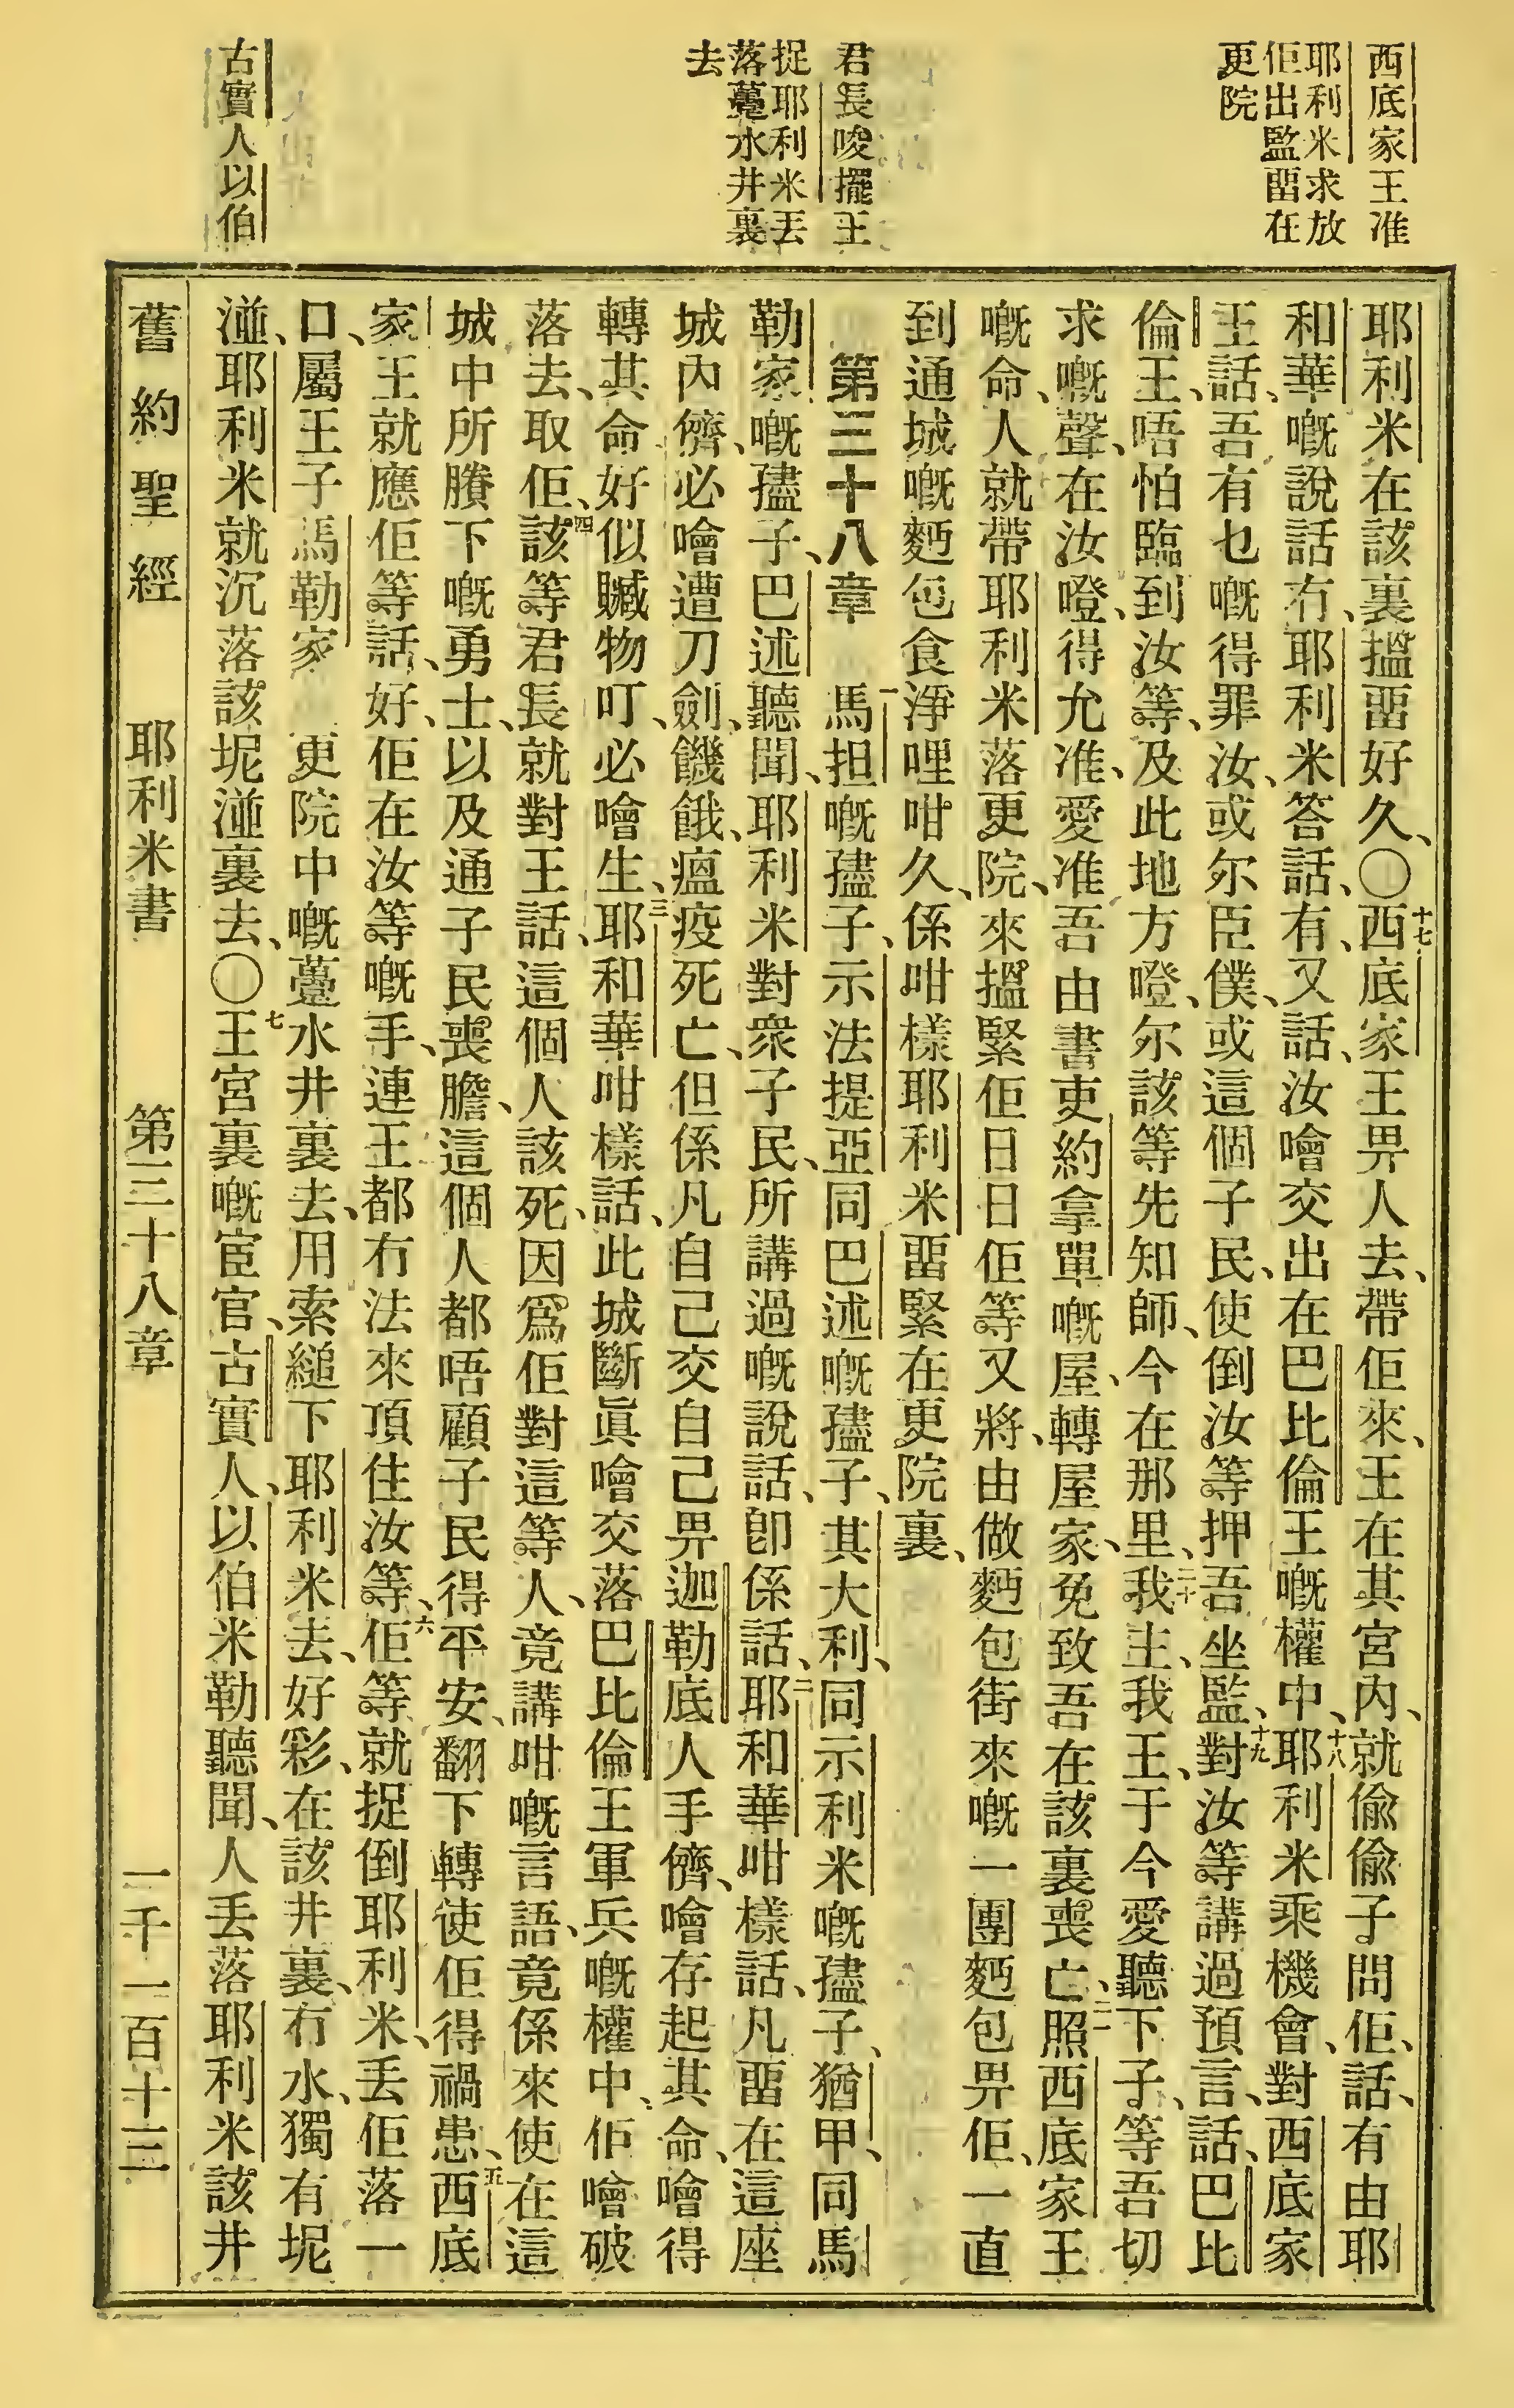 西底家王准
耶利米求放
佢出監畱在
更院
君長唆擺王
捉耶利米丟
落躉水井裏
去
古實人以伯
耶利米在該裏搵畱好久、〇十七西底家王畀人去、帶佢來、王在其宮內、就偸偸子問佢、話、有由耶
和華嘅說話冇、耶利米答話、有、又話、汝噲交出在巴比倫王嘅權中、十八耶利米乘機會、對西底家
王話、吾有乜嘅得罪汝、或尔臣僕、或這個子民、使倒汝等押吾坐監、十九對汝等講過預言、話、巴比
倫王、唔怕臨到汝等、及此地方噔、尔該等先知師、今在那里、二十我主、我王、于今愛聽下子、等吾切
求嘅聲、在汝噔、得允准、愛准吾由書吏約拿單嘅屋、轉屋家、免致吾在該裏喪亡、二一照西底家王
嘅命、人就帶耶利米落更院、來搵緊佢、日日佢等又將、由做麪包街來嘅一團麪包畀佢、一直
到通城嘅麪包食淨哩咁久、係咁樣耶利米畱緊在更院裏、
第三十八章　一馬担嘅孻子、示法提亞同巴述嘅孻子、其大利、同示利米嘅孻子、猶甲、同馬
勒家嘅孻子、巴述聽聞、耶利米對衆子民、所講過嘅說話、卽係話、二耶和華咁樣話、凡畱在這座
城內儕、必噲遭刀劍、饑餓、瘟疫死亡、但係凡自己交自己畀迦勒底人手儕、噲存起其命、噲得
轉其命好似贓物叮、必噲生、三耶和華咁樣話、此城斷眞噲交落巴比倫王軍兵嘅權中、佢噲破
落去、取佢、四該等君長就對王話、這個人該死、因爲佢對這等人、竟講咁嘅言語、竟係來使在這
城中所賸下嘅勇士、以及通子民喪膽、這個人都唔顧子民得平安、翻下轉使佢得禍患、五西底
家王就應佢等話、好、佢在汝等嘅手、連王都冇法來頂住汝等、六佢等就捉倒耶利米、丟佢落一
口、屬王子馬勒家　更院中嘅躉水井裏去、用索縋下耶利米去、好彩、在該井裏、冇水、獨有坭
湴、耶利米就沉落該坭湴裏去、〇七王宮裏嘅宦官、古實人、以伯米勒聽聞、人丟落耶利米該井
舊約聖經　耶利米書　第三十八章　一千一百十三